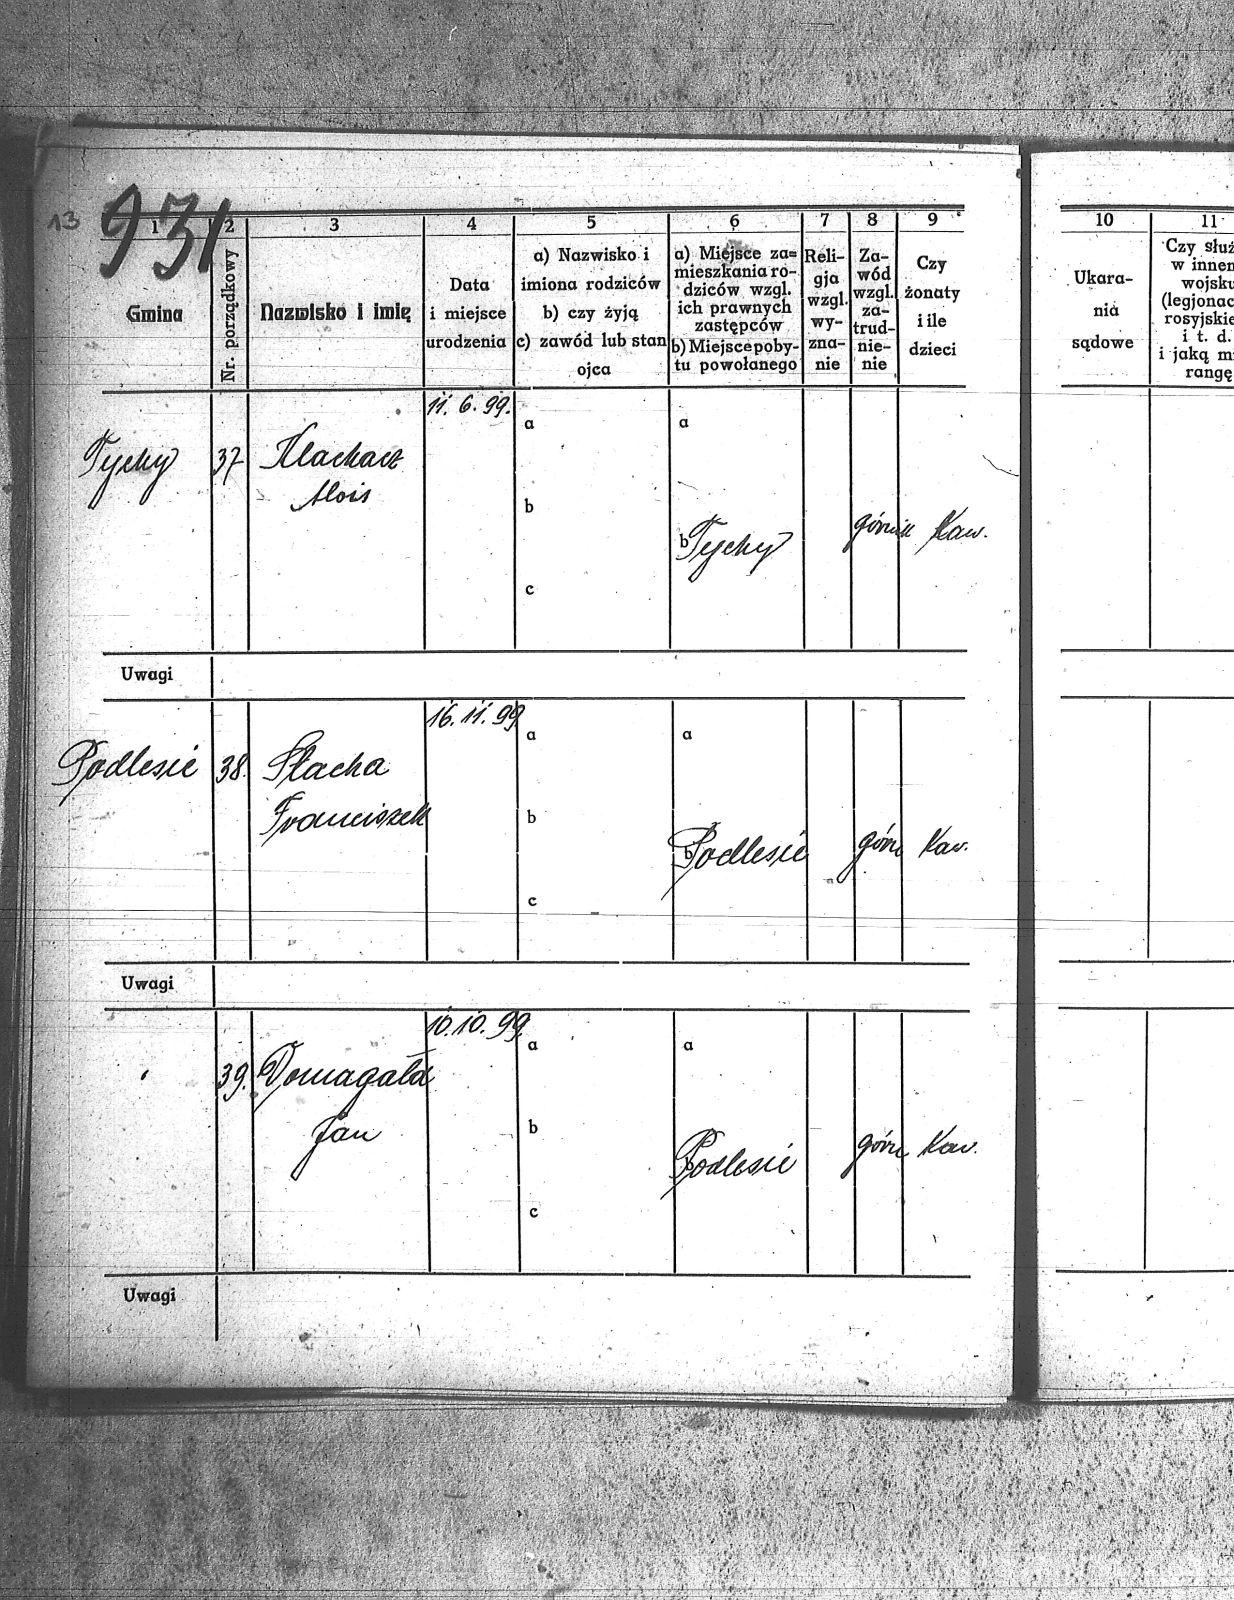 13
931
1 2 3 4 5 6 7 8 9
Gmina
Nr. porządkowy
Nazwisko i imię
Data
i miejsce
urodzenia
a) Nazwisko i
imiona rodziców
b) czy żyją
c) zawód lub stan
ojca
a) Miejsce za=
mieszkania ro-
dziców wzgl.
ich prawnych
zastępców
b) Miejsce poby-
tu powołanego
Reli-
gja
wzgl.
wy-
zna-
nie
Za-
wód
wzgl.
za-
trud-
nie-
nie
Czy
żonaty
i ile
dzieci
10 11
Ukara-
nia
sądowe
Czy służ
w innem
wojsku
(legjonac
rosyjskie
i t. d.
i jaką m
rangę
11. 6. 99.
a a
Tychy 37
Alois
b
b Tychy górnik Kaw.
c
Uwagi
16. 11. 99
a a
Podlesie 38.
Franciszek
b
b Podlesie górn Kaw.
c
Uwagi
10. 10. 99.
a a
" 39. Domagała
Jan
b
b Podlesie górn Kaw.
c
Uwagi